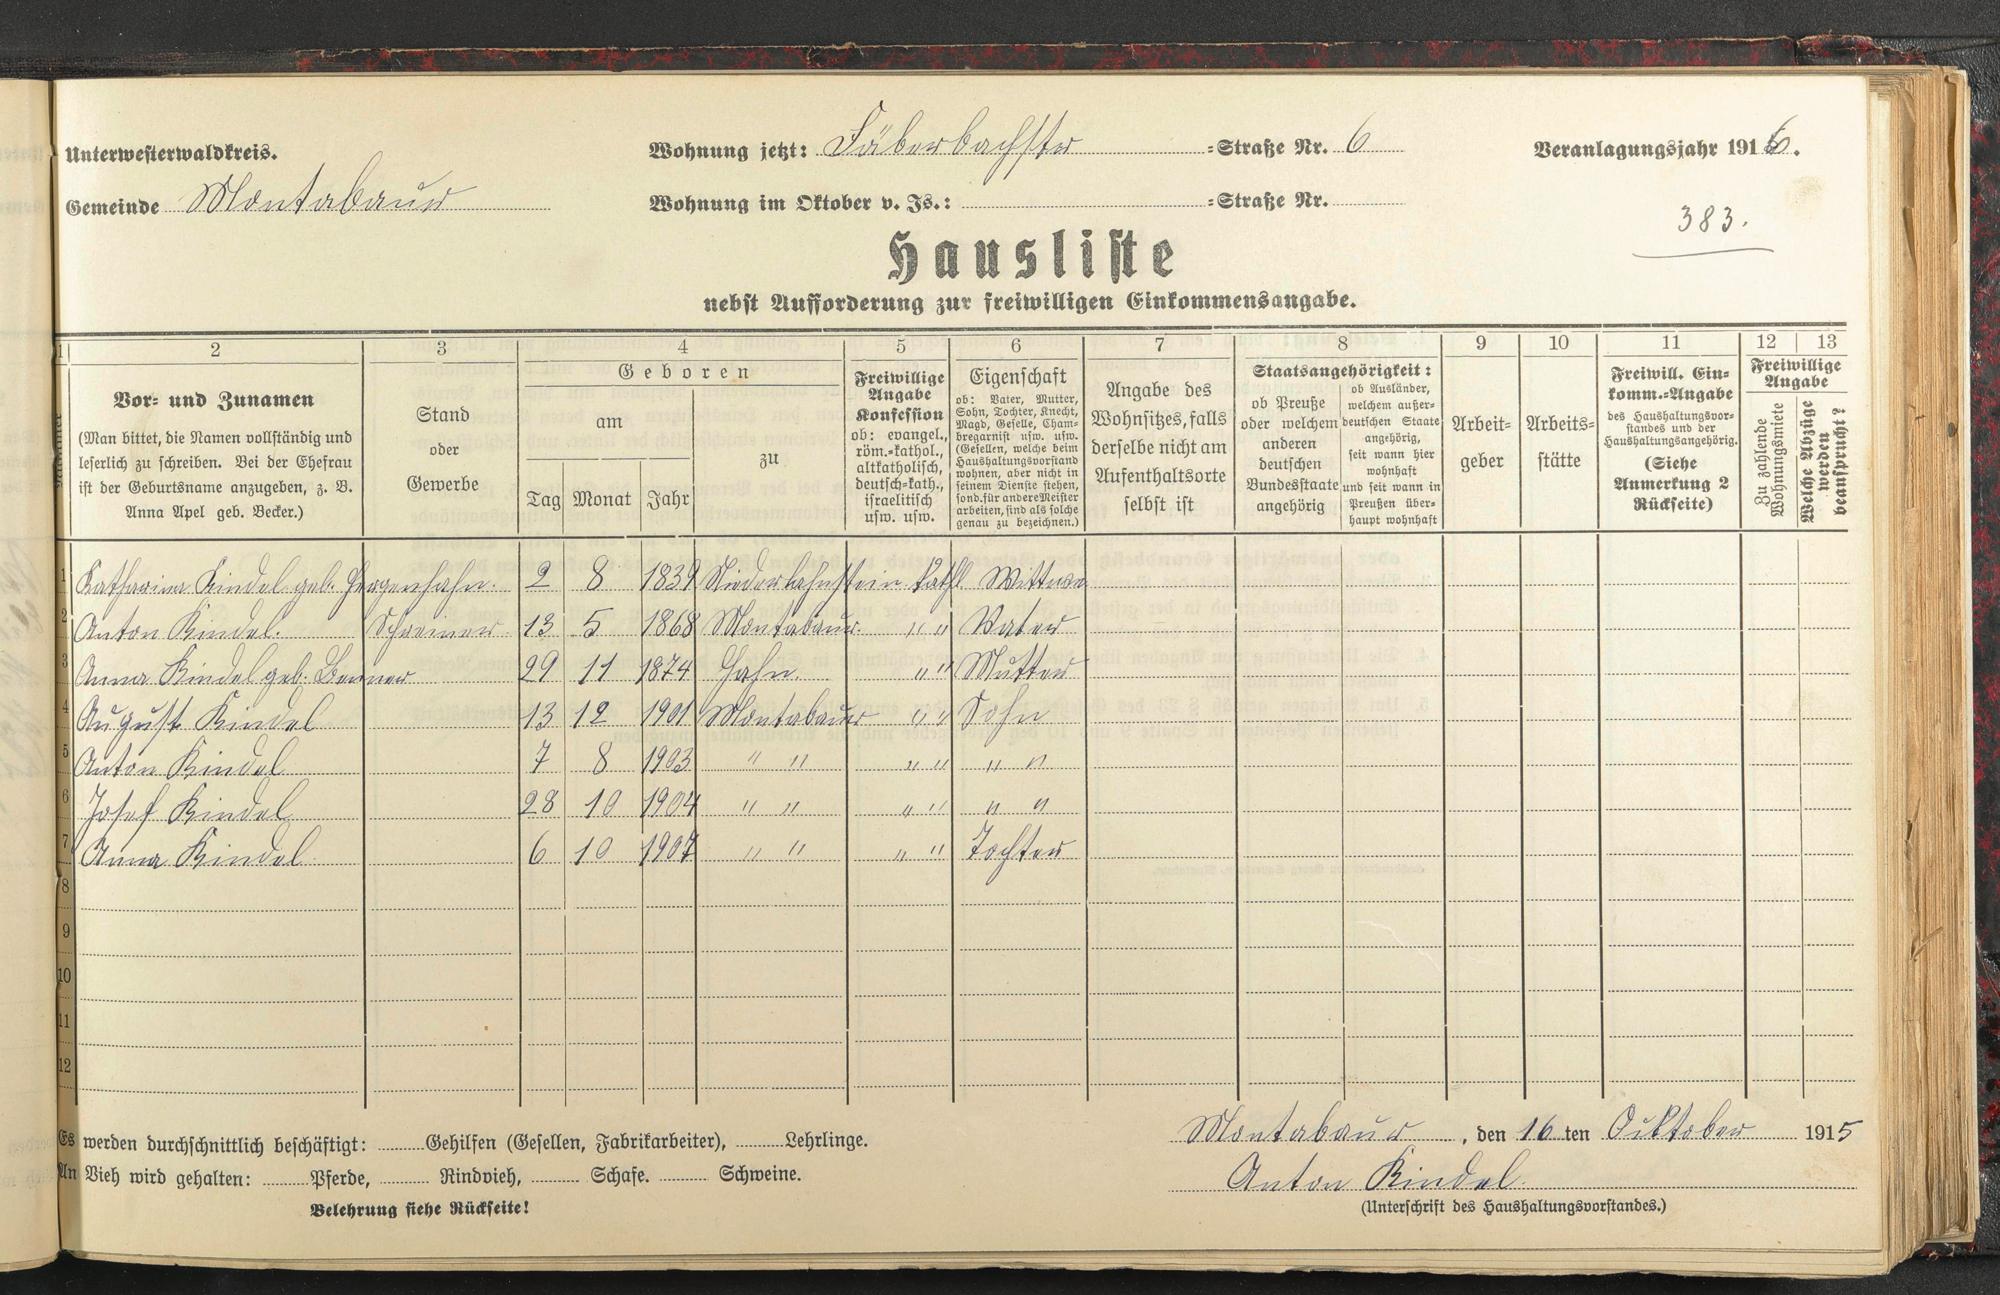 Unterwesterwaldkreis.
Gemeinde Montabaur
Wohnung jetzt: Färberbachstr =Straße Nr. 6
Wohnung im Oktober v. Js.: =Straße Nr.
Veranlagungsjahr 1916.
383.
Hausliste
nebst Aufforderung zur freiwilligen Einkommensangabe.
1 2 3 4 5 6 7 8 9 10 11 12 13
Vor- und Zunamen
(Man bittet, die Namen vollständig und
leserlich zu schreiben. Bei der Ehefrau
ist der Geburtsname anzugeben, z. B.
Anna Apel geb. Becker.)
Stand
oder
Gewerbe
Geboren
am
zu
Tag Monat Jahr
Freiwillige
Angabe
Konfession
ob: evangel.,
röm.-kathol.,
altkatholisch,
deutsch-kath.,
israelitisch
usw. usw.
Eigenschaft
ob: Vater, Mutter,
Sohn, Tochter, Knecht,
Magd, Geselle, Cham-
bregarnist usw. usw.
(Gesellen, welche beim
Haushaltungsvorstand
wohnen, aber nicht in
seinem Dienste stehen,
sond. für andere Meister
arbeiten, sind als solche
genau zu bezeichnen.)
Angabe des
Wohnsitzes, falls
derselbe nicht am
Aufenthaltsorte
selbst ist
Staatsangehörigkeit:
ob Preuße
oder welchem
anderen
deutschen
Bundesstaate
angehörig
ob Ausländer,
welchem außer-
deutschen Staate
angehörig,
seit wann hier
wohnhaft
und seit wann in
Preußen über-
haupt wohnhaft
Arbeit-
geber
Arbeits-
stätte
Freiwill. Ein-
komm.-Angabe
des Haushaltungsvor-
standes und der
Haushaltungsangehörig.
(Siehe
Anmerkung 2
Rückseite)
Freiwillige
Angabe
Zu zahlende
Wohnungsmiete
Welche Abzüge
werden
beansprucht?
1 Katharina Kindel geb. Hergenhahn. 2 8 1839 Niederlahnstein kathl Wittwe
2 Anton Kindel. Schreiner 13 5 1868 Montabaur. " " Vater
3 Anna Kindel geb. Benner 29 11 1874 Hahn. " " Mutter
4 August Kindel 13 12 1901 Montabaur " " Sohn
5 Anton Kindel 7 8 1903 " " " " " "
6 Josef Kindel 28 10 1904 " " " " " "
7 Anna Kindel 6 10 1907 " " " " Tochter
8
9
10
11
12
Es werden durchschnittlich beschäftigt: Gehilfen (Gesellen, Fabrikarbeiter), Lehrlinge.
An Vieh wird gehalten: Pferde, Rindvieh, Schafe. Schweine.
Belehrung siehe Rückseite!
Montabaur, den 16 ten Oucktober 1915
Anton Kindel
(Unterschrift des Haushaltungsvorstandes.)